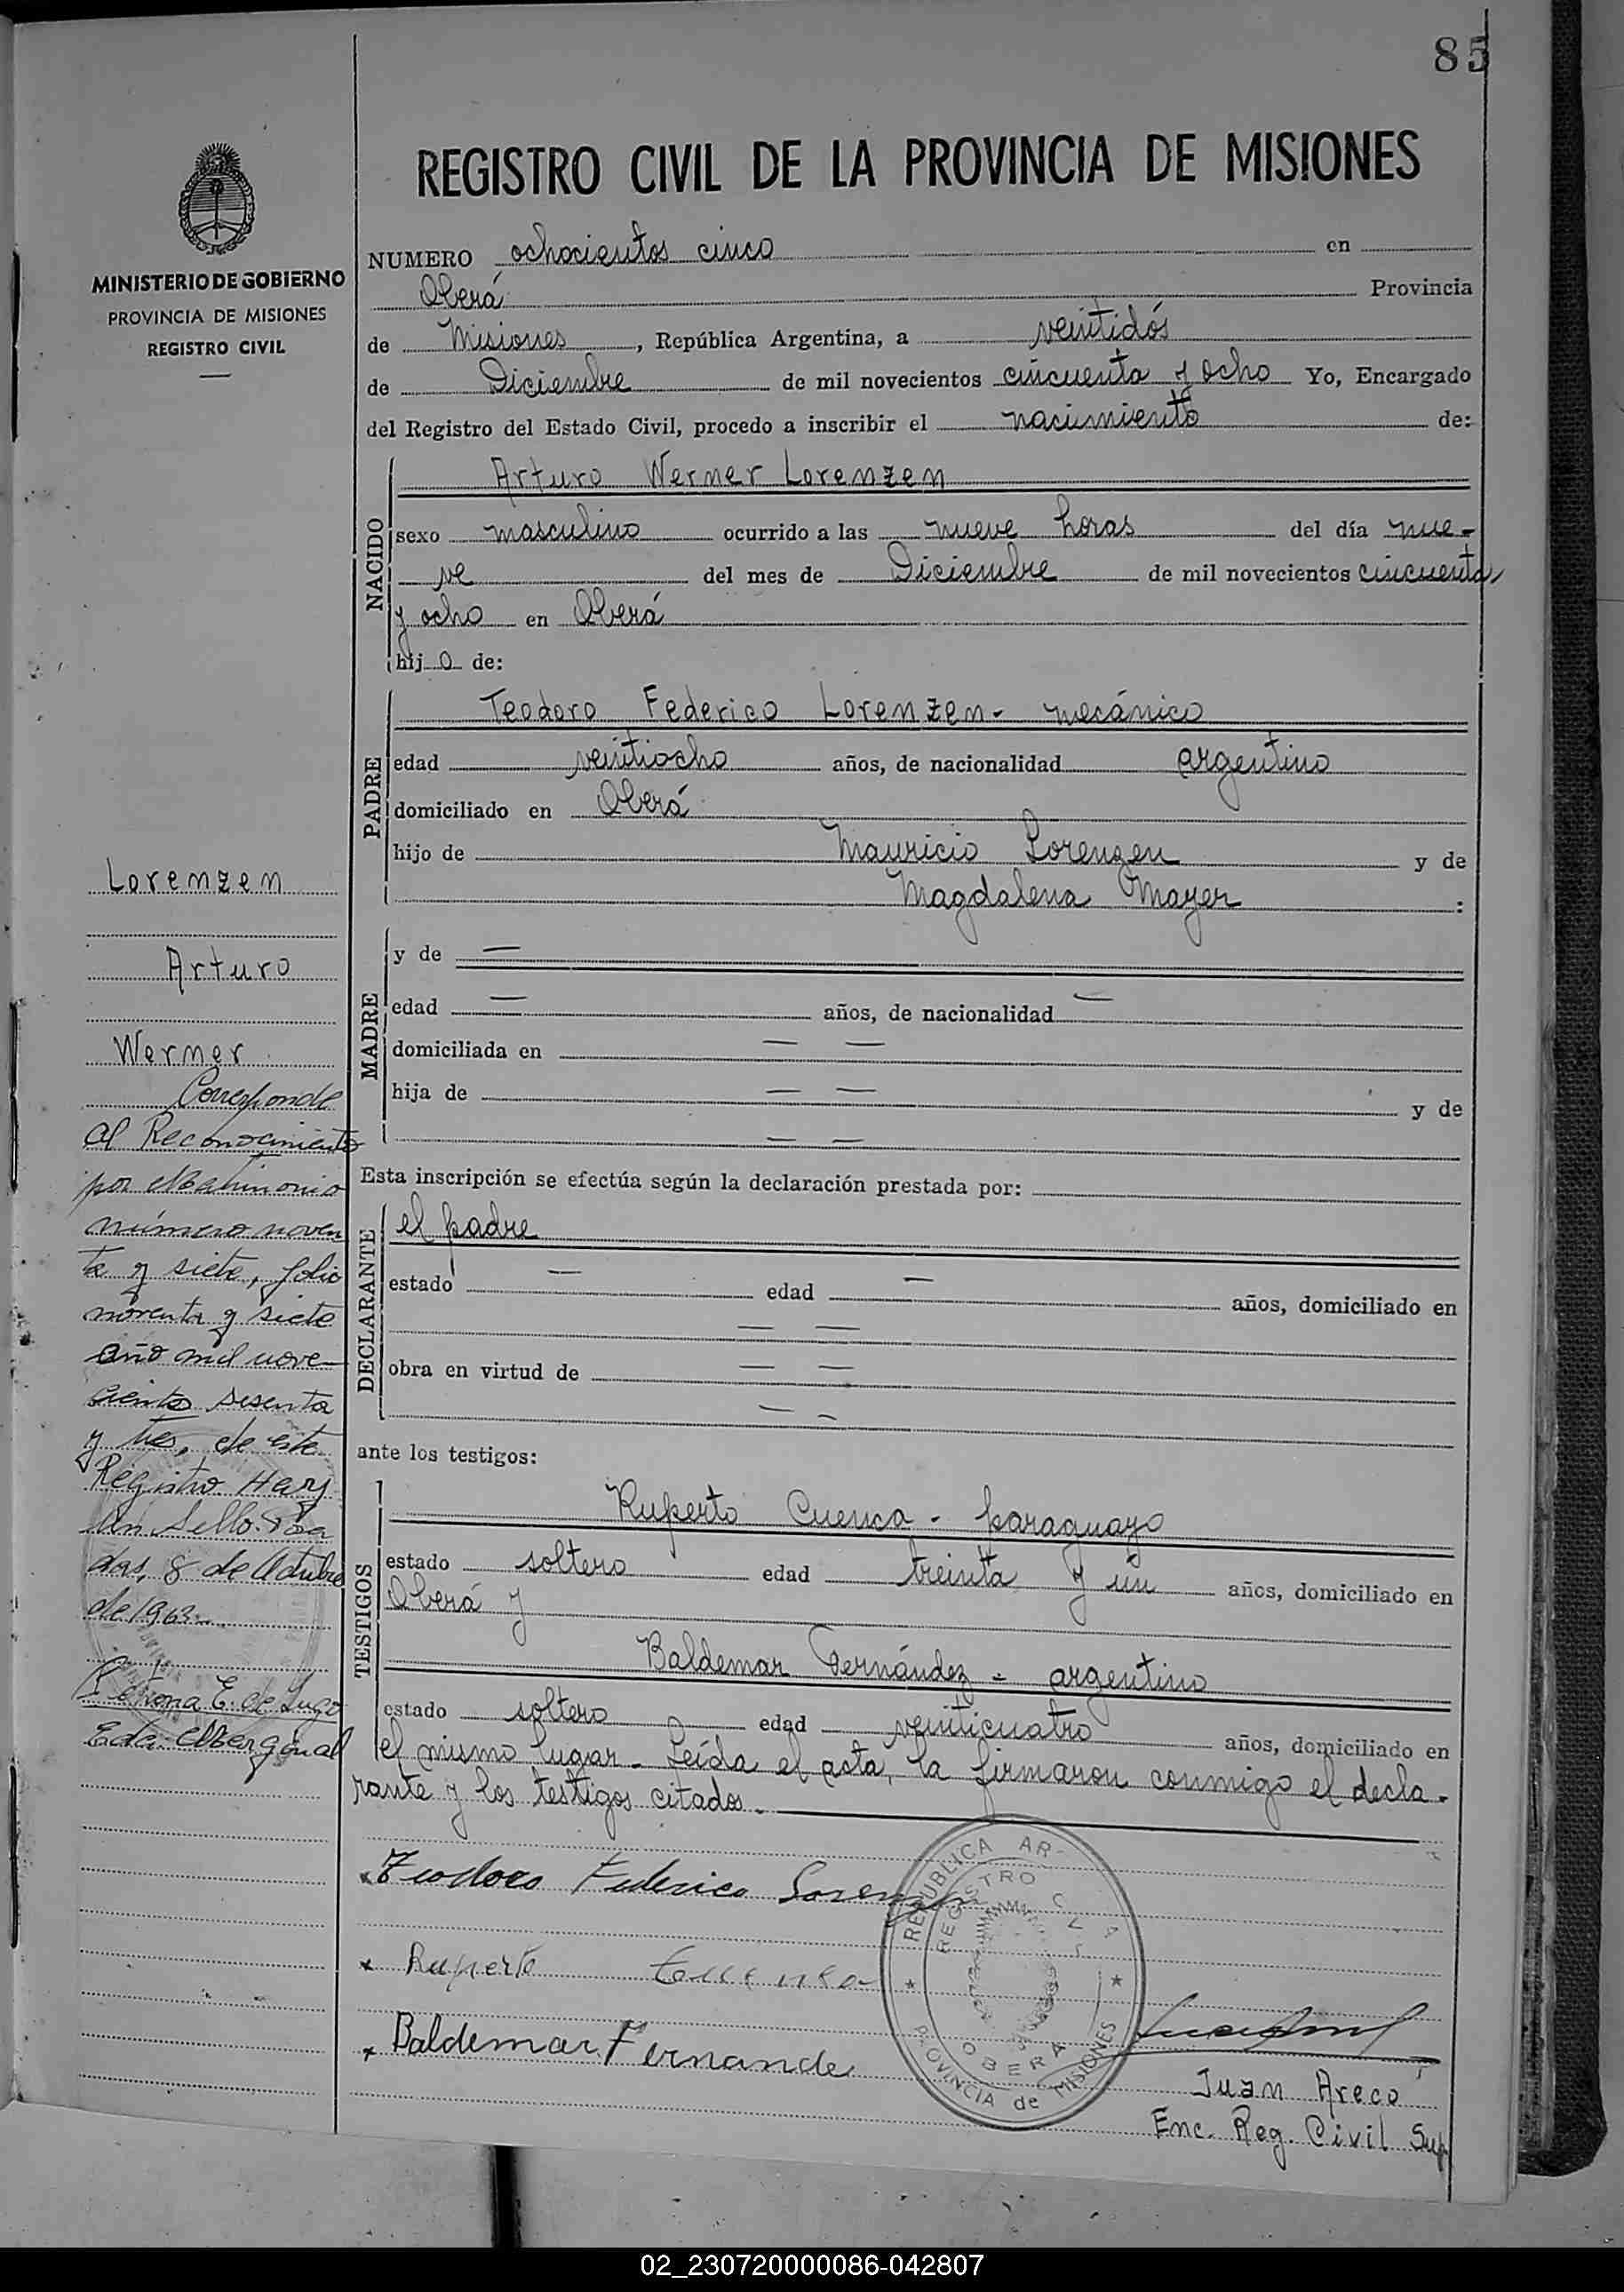 85
REGISTRO CIVIL DE LA PROVINCIA DE MISIONES
MINISTERIO DE GOBIERNO
PROVINCIA DE MISIONES
REGISTRO CIVIL
NUMERO ochocientos cinco en
Oberá Provincia
de Misiones, República Argentina, a veintidós
de Diciembre de mil novecientos cincuenta y ocho Yo, Encargado
del Registro del Estado Civil, procedo a inscribir el nacimiento de:
NACIDO
Arturo Werner Lorenzen
sexo masculino ocurrido a las nueve horas del día nue-
ve del mes de Diciembre de mil novecientos cincuenta
y ocho en Oberá
hijo de:
PADRE
Teodoro Federico Lorenzen - mecánico
edad veintiocho años, de nacionalidad argentino
domiciliado en Oberá
hijo de Mauricio Lorenzen y de
Magdalena Mayer :
MADRE
y de —
edad — años, de nacionalidad —
domiciliada en — —
hija de — — y de
— —
Esta inscripción se efectúa según la declaración prestada por:
DECLARANTE
el padre
estado — edad — años, domiciliado en
— —
obra en virtud de — —
— —
ante los testigos:
TESTIGOS
Ruperto Cuenca - paraguayo
estado soltero edad treinta y un años, domiciliado en
Oberá y
Baldemar Fernández - argentino
estado soltero edad veinticuatro años, domiciliado en
el mismo lugar - Leída el acta, la firmaron conmigo el decla-
rante y los testigos citados.-
Lorenzen
Arturo
Werner
Corresponde
al Reconocimiento
por Matrimonio
número noven
ta y siete, folio
noventa y siete
año mil nove-
ciento sesenta
y tres, de este
Registro. Hay
un sello. Posa
das, 8 de Octubre
de 1963.-
Petrona E. de Lugo
Teodoro Federico Lorenzen
Ruperto Cuenca
Baldemar Fernande
REPUBLICA AR
REGISTRO C
OBERÁ
PROVINCIA de MISIONES
Juan Areco
Enc. Reg. Civil Sup.
02_230720000086-042807